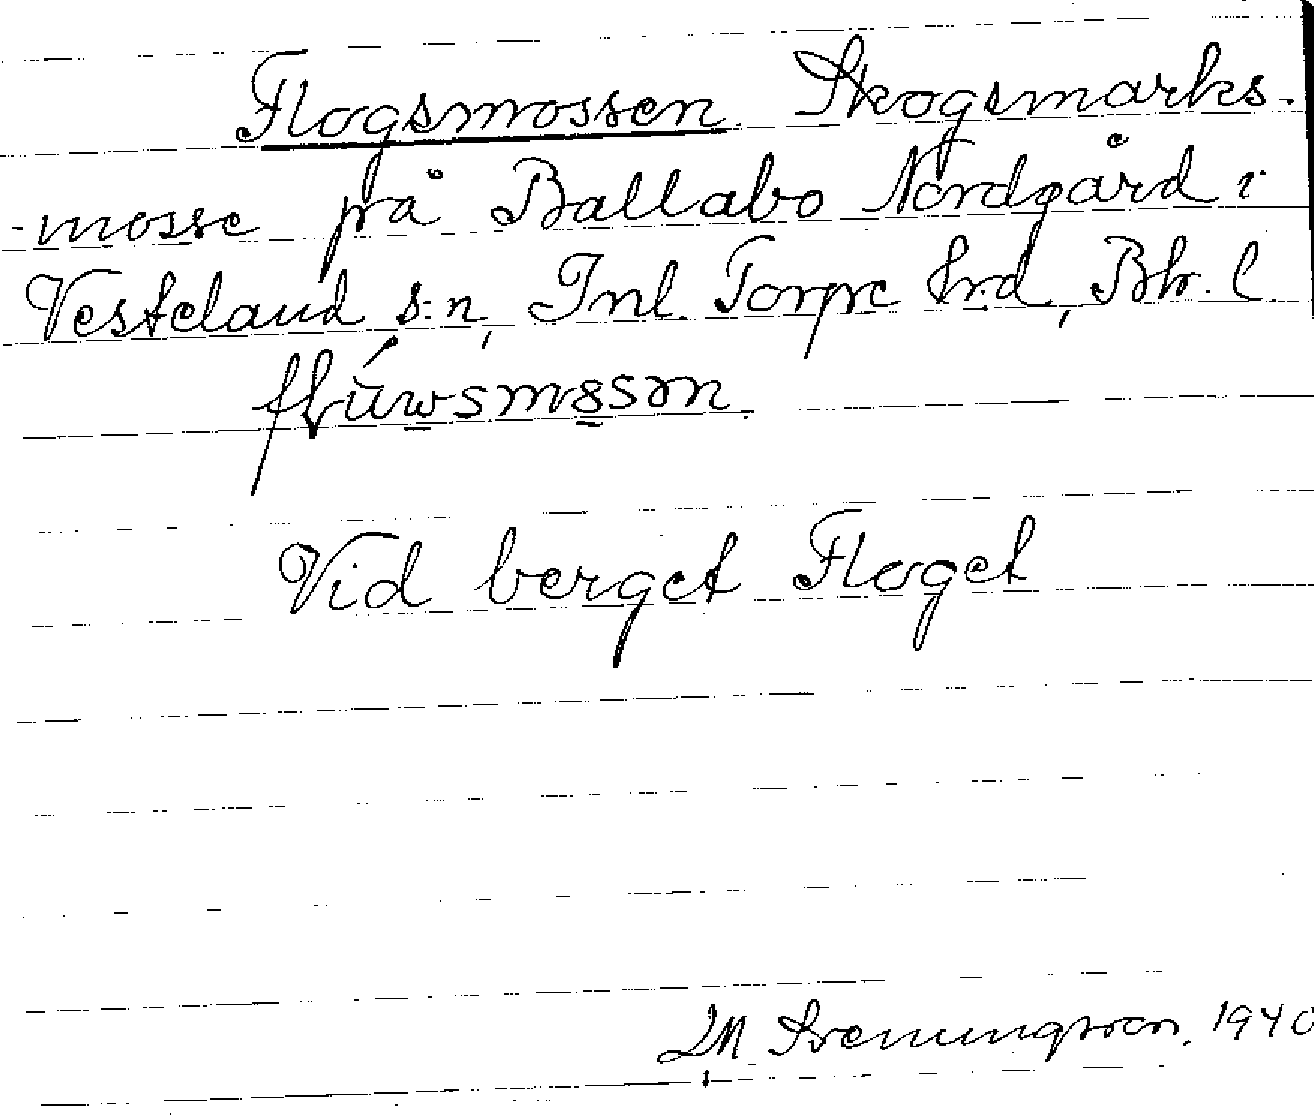 Flogsmossen. Skogsmarks-
-mosse på Ballabo Nordgård i
Vesteland s:n, Inl. Torpe hrd, Bh. l.
Vid berget Floget
Svenungsson, 1940